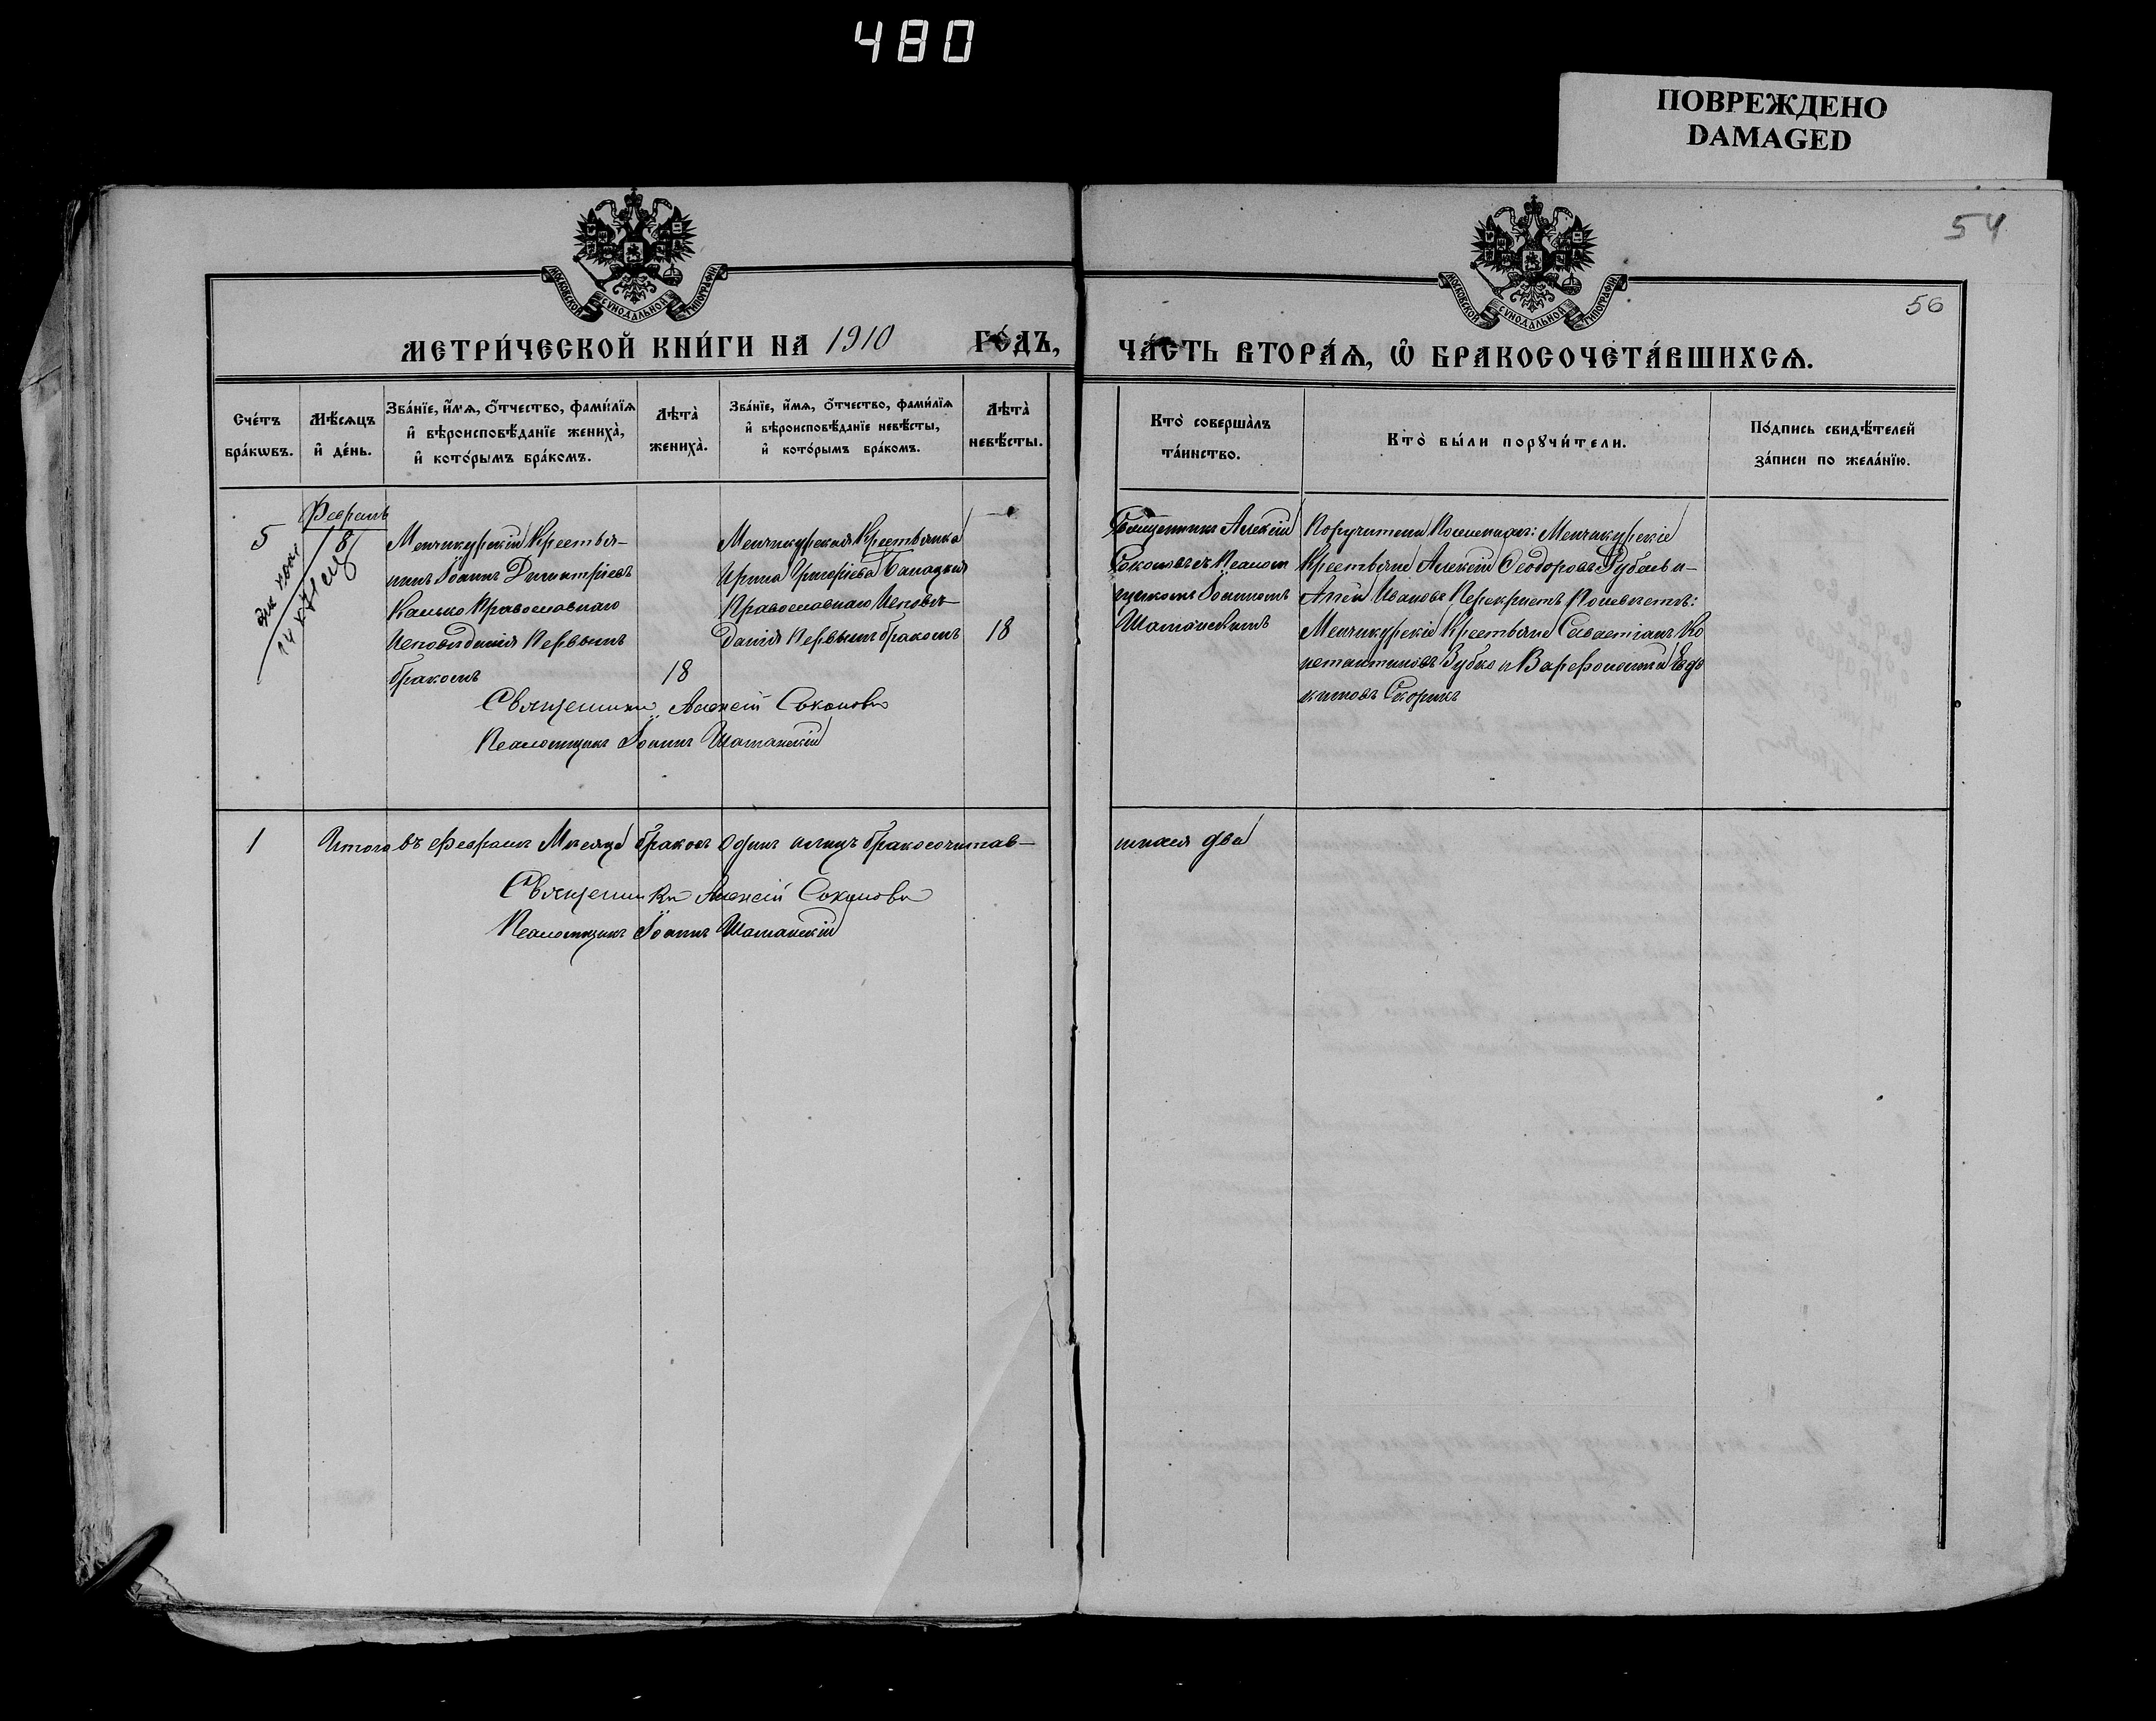 480
ПОВРЕЖДЕНО
DAMAGED
54
56
МОСКОВСКОЙ СѴНОДАЛЬНОЙ ТИПОГРАФІИ
МОСКОВСКОЙ СѴНОДАЛЬНОЙ ТИПОГРАФІИ
МЕТРИ́ЧЕСКОЙ КНИ́ГИ НА 1910 ГО́ДЪ,
ЧА́СТЬ ВТОРА́Ѧ, Ѽ БРАКОСОЧЕТА́ВШИХСѦ.
Сче́тъ бра́кѡвъ.
Мѣ́сѧцъ и҆ де́нь.
Зва́нїе, и҆́мѧ, ѻ҆́тчество, фами́лїѧ и҆ вѣроисповѣ́данїе жениха̀, и҆ кото́рымъ бра́комъ.
Лѣта̀ жениха̀.
Зва́нїе, и҆́мѧ, ѻ҆́тчество, фами́лїѧ и҆ вѣроисповѣ́данїе невѣ́сты, и҆ кото́рымъ бра́комъ.
Лѣта̀ невѣ́сты.
Кто̀ соверша̀лъ та́инство.
Кто̀ бы́ли порꙋчи́тели.
По́дпись свидѣ́телей за́писи по жела́нїю.
5
Февраль
8
Менчикурскій Крестья-
нинъ Іоаннъ Димитріевъ
Калько Православнаго
Исповѣданія Первымъ
бракомъ
18
Менчикурская Крестьянка
Ирина Григоріева
Православнаго Исповѣ-
данія Первымъ бракомъ
18
Священникъ Алексій
Соколовъ съ Псалом
щикомъ Іоанномъ
Шатанскимъ
Поручители По женихѣ: Менчикурскіе
Крестьяне Алексій Ѳеодоровъ и
Ивановъ Перекристъ По невѣстѣ:
Менчикурскіе Крестьяне Севастіанъ Ко
нстантиновъ Зубко и Варѳоломей Евдо
кимовъ Скорикъ
Священникъ Алексій Соколовъ
Псаломщикъ Іоаннъ Шатанскій
1
Итого въ Февралѣ Мѣсяцѣ браковъ Одинъ а лицъ бракосочитав-
шихся два
Священникъ Алексій Соколовъ
Псаломщикъ Іоаннъ Шатанскій